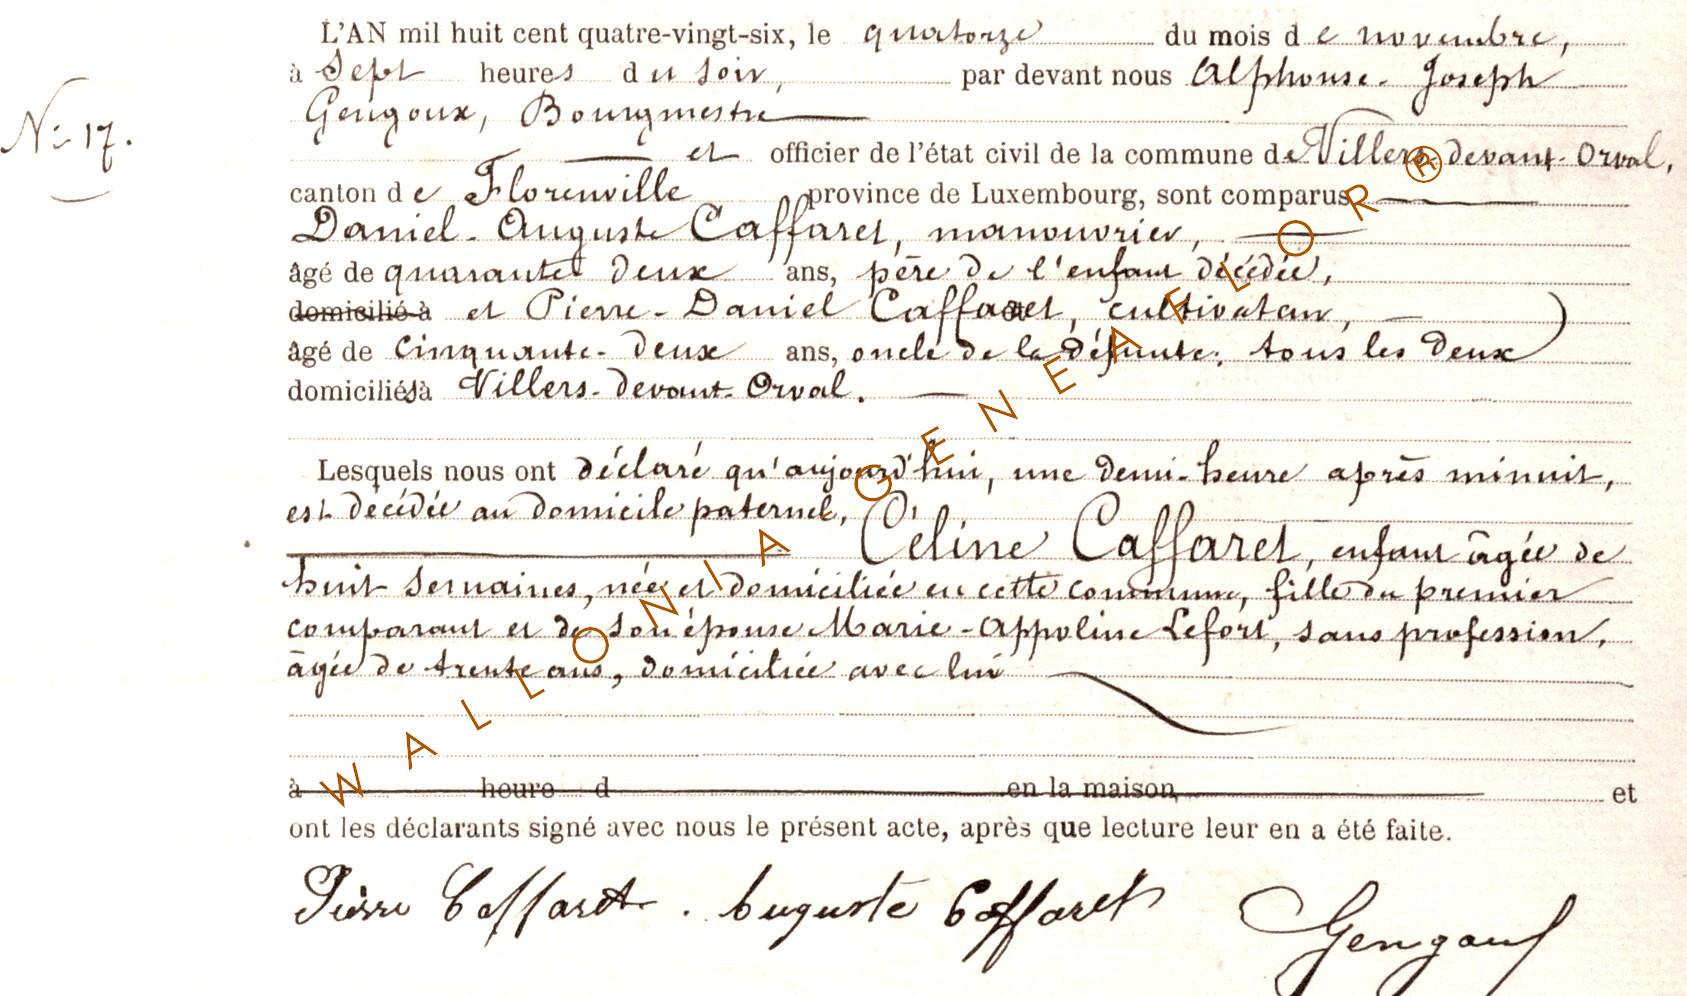 L'AN mil huit cent quatre-vingt-six, le quatorze du mois de novembre,
à Sept heures du soir, par devant nous Alphonse-Joseph
Gengoux, Bourgmestre
Nº 17.
et officier de l'état civil de la commune de Villers-devant-Orval,
canton de Florenville province de Luxembourg, sont comparus
Daniel-Auguste Caffaret, manouvrier,
âgé de quarante deux ans, père de l'enfant décédée,
domicilié à et Pierre-Daniel Caffaret, cultivateur,
âgé de cinquante-deux ans, oncle de la défunte; tous les deux
domiciliés à Villers-devant-Orval.
Lesquels nous ont déclaré qu'aujourd'hui, une demi-heure après minuit,
est décédée au domicile paternel,
Céline Caffaret, enfant âgée de
huit semaines, née et domiciliée en cette commune, fille du premier
comparant et de son épouse Marie-Appoline Lefort, sans profession,
âgée de trente ans, domiciliée avec lui
à heure d en la maison et
ont les déclarants signé avec nous le présent acte, après que lecture leur en a été faite.
Pierre Caffaret. Auguste Caffaret Gengoux
WALLONIA GENEAFLOR ®